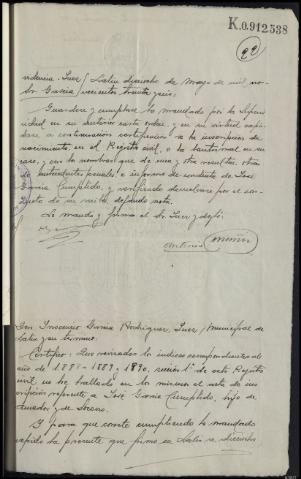 K.0.912538
22
Juez / Lalín dieciocho de Mayo de mil no-
Sr. García / vecientos treinta y seis.
Guárdese y cúmplase lo mandado por la Superi-
oridad en su carta orden, y en su virtud expí-
dase a continuación certificación de la inscripción de
nacimiento, en el Registro civil, o la bautismal en su
caso, y en la
de antecedentes penales e informe de conducta de José
García Cumplido, y verificado devuélvase por el con-
ducto de su recibo, dejando nota.
Lo mandó y firma el Sr. Juez y doy fe.
Antonio
Don Inocencio García Rodríguez, Juez Municipal de
Lalín y su término.
Certifico: Que revisados los índices correspondientes al
año de 1888-1889-1890, sección 1ª de este Registro
civil, no se ha hallado en los mismos el acta de ins-
cripción referente a José García Cumplido, hijo de
Amador y de
Y para que conste cumpliendo lo mandado
expido la presente que firmo en Lalín a dieciocho